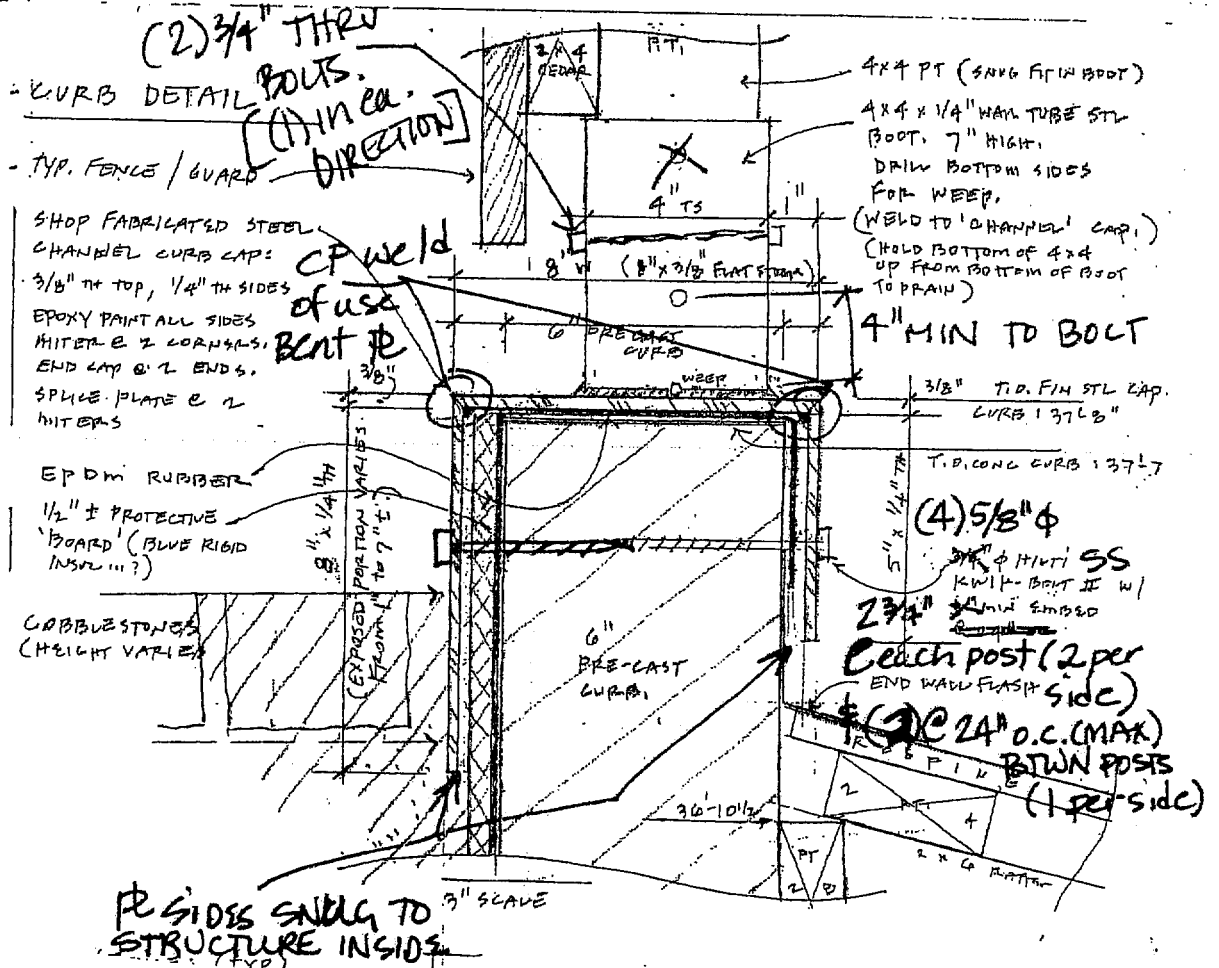 (2) 3/4" THRU
BOLTS.
[(1) IN ea.
DIRECTION]
- CURB DETAIL
- TYP. FENCE / GUARD
SHOP FABRICATED STEEL
CHANNEL CURB CAP:
3/8" TH TOP, 1/4" TH SIDES
EPOXY PAINT ALL SIDES
MITER @ 2 CORNERS.
END CAP @ 2 ENDS.
SPLICE PLATE @ 2
MITERS
CP weld
of use
Bent PL
EPDM RUBBER
1/2" ± PROTECTIVE
'BOARD' (BLUE RIGID
INSUL ...?)
COBBLESTONES
(HEIGHT VARIES)
2 x 4
CEDAR
P.T.
4" TS
1"
8" W
(8" x 3/8" FLAT STOCK)
6" PRE-CAST
CURB
WEEP
3/8"
8" x 1/4" TH
(EXPOSED PORTION VARIES
FROM 1" TO 7" ±)
6"
PRE-CAST
CURB.
4x4 PT (SNUG FIT IN BOOT)
4x4 x 1/4" WALL TUBE STL
BOOT. 7" HIGH.
DRILL BOTTOM SIDES
FOR WEEP.
(WELD TO 'CHANNEL' CAP.)
(HOLD BOTTOM OF 4x4
UP FROM BOTTOM OF BOOT
TO DRAIN)
4" MIN TO BOLT
3/8"
T.O. FIN STL CAP.
CURB : 37'-8"
T.O. CONC CURB : 37'-7
5" x 1/4" TH
(4) 5/8" φ
3/4" φ HILTI SS
KWIK-BOLT II W/
2 3/4" MIN EMBED
@ each post (2 per
side)
END WALL FLASH
@ 24" O.C. (MAX)
BTWN POSTS
(1 per side)
36'-10 1/2
2
P.T.
4
2 x 6 RAFTER
PT
2 8
3" SCALE
PL SIDES SNUG TO
STRUCTURE INSIDE
(TYP)